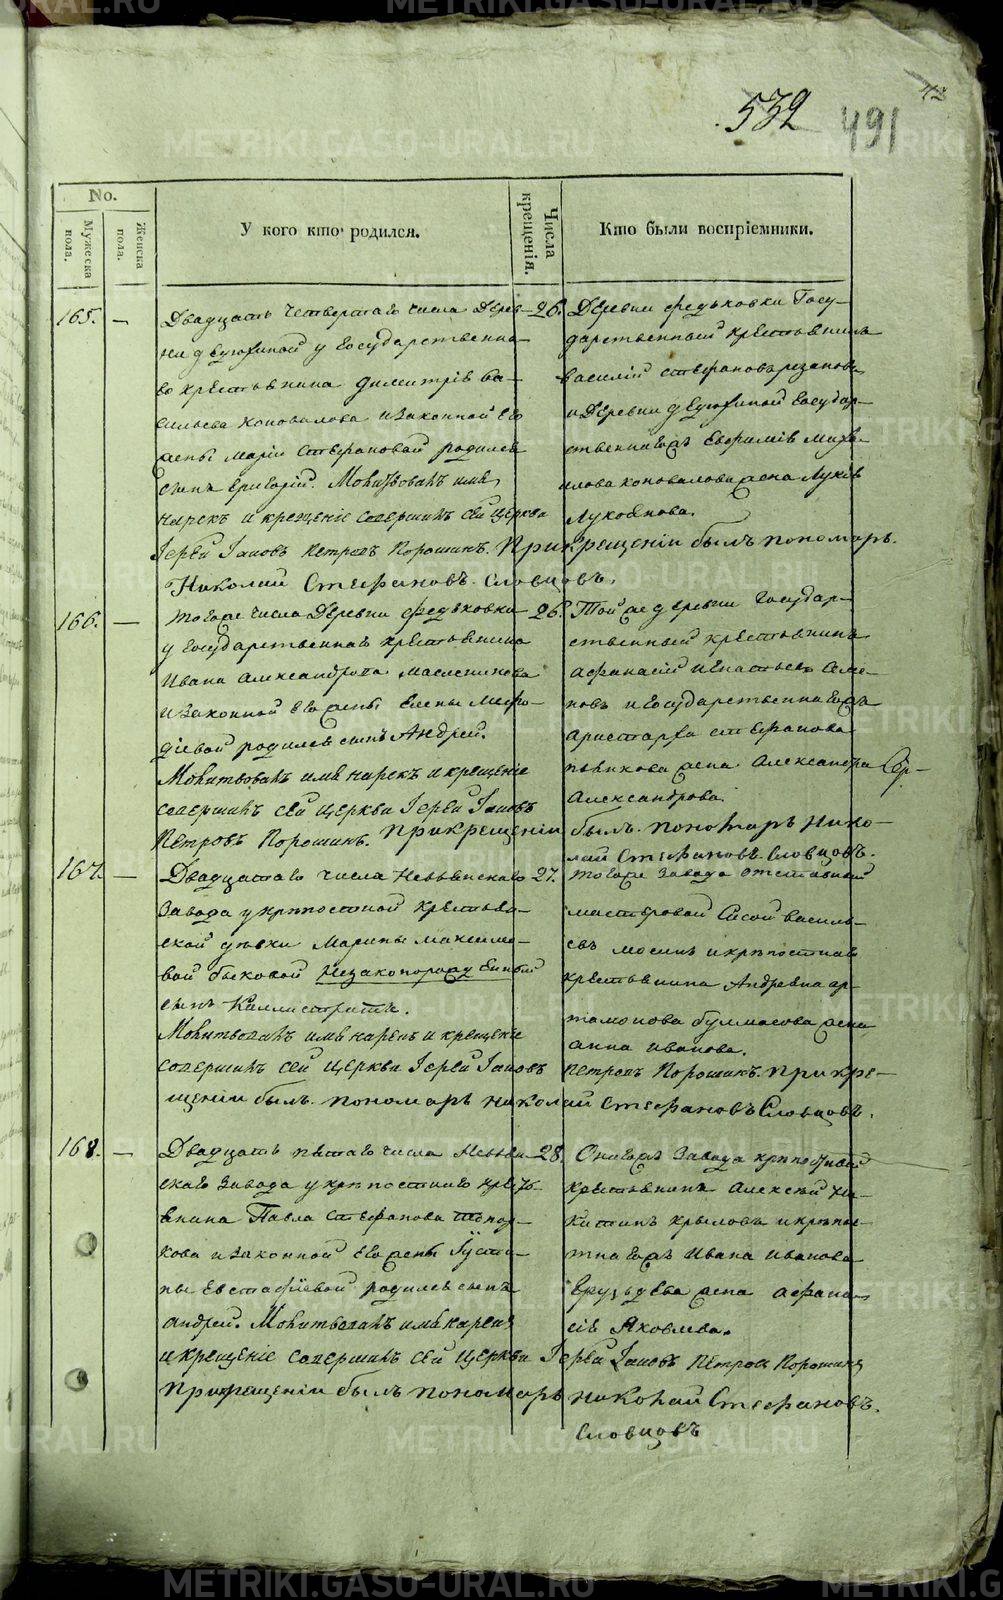 532 491
No.
Мужеска пола.
Женска пола.
У кого кто родился.
Числа крещенія.
Кто были воспріемники.
165. —
Двадцать четвертаго числа Дерев-
ни у Государственна-
го крестьянина Димитрія Ва-
сильева Коновалова и законной его
жены Маріи Стефановой родился
сынъ Григорій. Молитвовалъ имя
нарекъ и крещеніе совершилъ сей церкви
Іерей Іаковъ Петровъ Порошинъ. При крещеніи былъ пономарь
Николай Стефановъ Словцовъ.
26.
Деревни Федьковки Госу-
дарственный крестьянинъ
Василій Стефановъ Рязановъ
и Деревни Государ-
ственнагожъ Евфимія Михаи-
лова Коновалова жена Лукія
Лукоянова.
166. —
Тогоже числа Деревни Федьковки
у Государственнаго крестьянина
Ивана Александрова Масленикова
и законной его жены Елены Мефо-
діевой родился сынъ Андрей.
Молитвовалъ имя нарекъ и крещеніе
совершилъ сей церкви Іерей Іаковъ
Петровъ Порошинъ. При крещеніи былъ пономарь Нико-
лай Стефановъ Словцовъ.
26.
Той же деревни Государ-
ственный крестьянинъ
Афанасій Игнатьевъ Семе-
новъ и Государственнагожъ
Аристарха Стефанова
жена Александра
Александрова.
167. —
Двадцатаго числа Невьянскаго
Завода у крѣпостной крестьян-
ской дѣвки Марины Максимо-
вой Быковой незаконорожденный
сынъ Каллистратъ.
Молитвовалъ имя нарекъ и крещеніе
совершилъ сей церкви Іерей Іаковъ Петровъ Порошинъ. При кре-
щеніи былъ пономарь Николай Стефановъ Словцовъ.
27.
Тогоже Завода отставной
мастеровой Сисой Василь-
евъ Мосинъ и крѣпостнаго
крестьянина Андреяна Ар-
тамонова Булмасова жена
Анна Иванова.
168. —
Двадцать пятаго числа Невьян-
скаго Завода у крѣпостнаго кресть-
янина Павла Стефанова Топор-
кова и законной его жены Іусти-
ны Евстафіевой родился сынъ
Андрей. Молитвовалъ имя нарекъ
и крещеніе совершилъ сей церкви Іерей Іаковъ Петровъ Порошинъ
При крещеніи былъ пономарь Николай Стефановъ
Словцовъ
28.
Онагожъ Завода крѣпостной
крестьянинъ Алексѣй Ни-
китинъ Крыловъ и крѣпос-
тнагожъ Ивана Иванова
жена Афана-
сія Яковлева.
METRIKI.GASO-URAL.RU